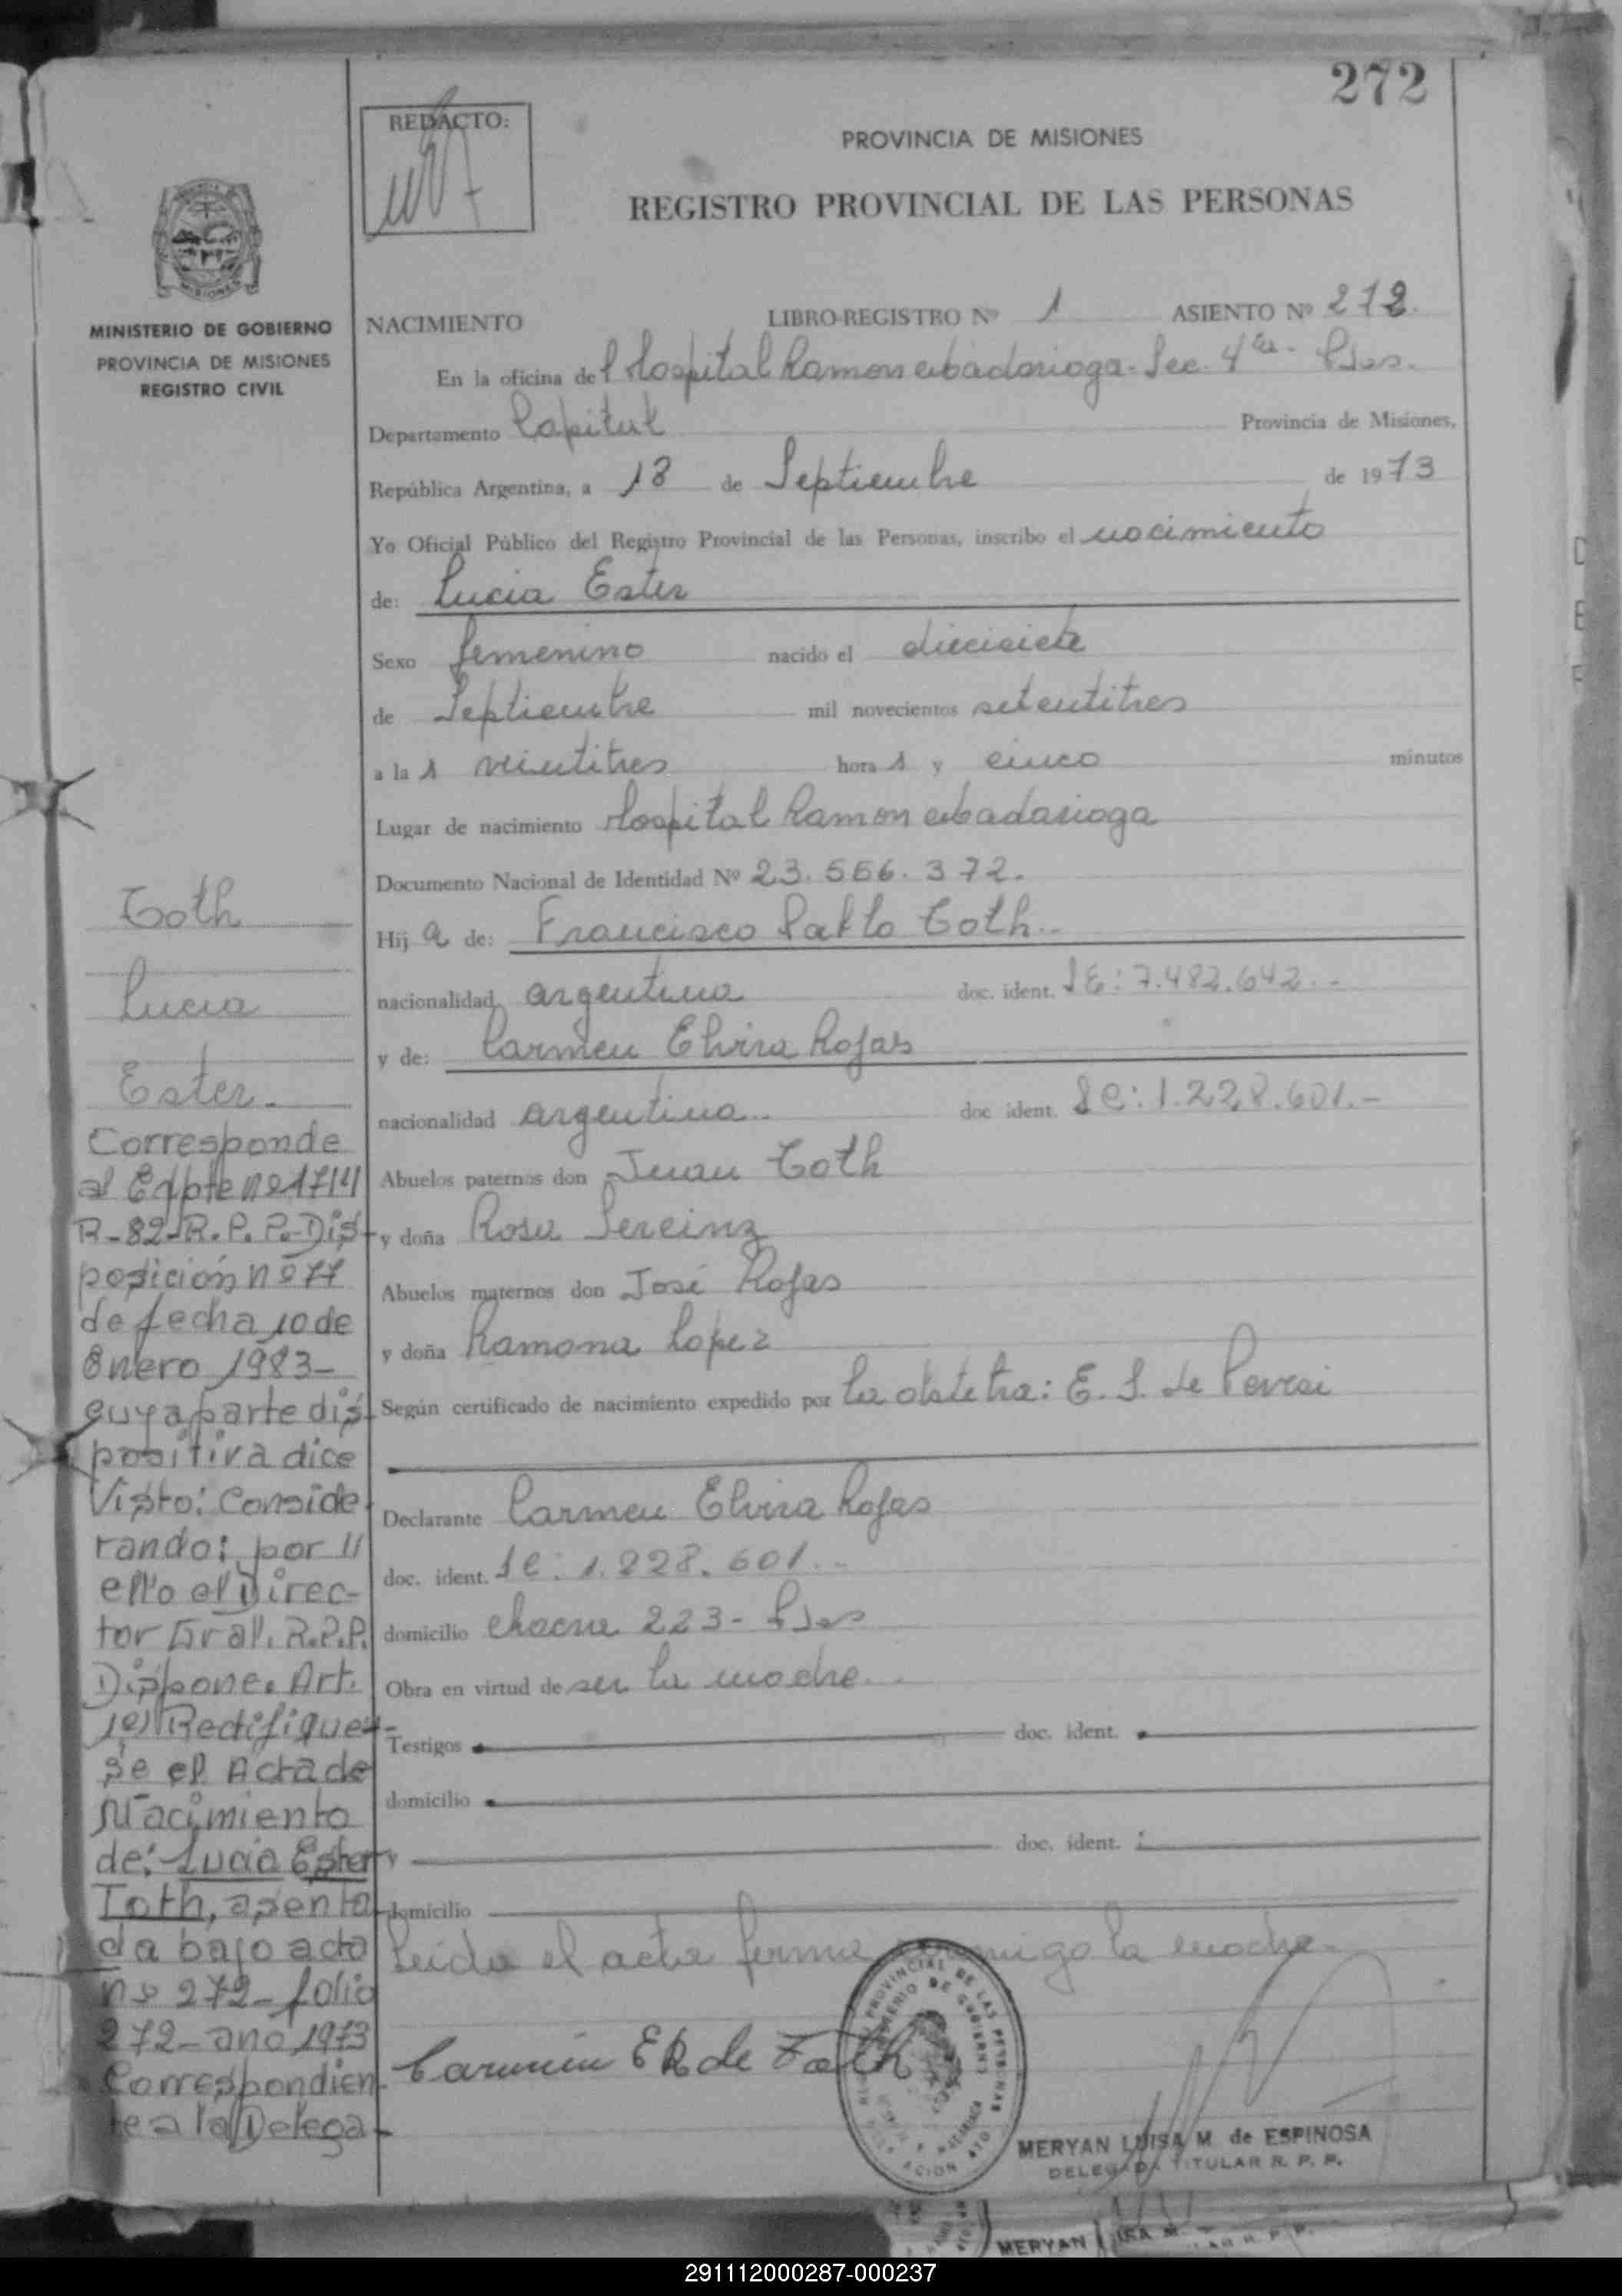 272
REDACTO:
PROVINCIA DE MISIONES
REGISTRO PROVINCIAL DE LAS PERSONAS
MISIONES
MINISTERIO DE GOBIERNO
PROVINCIA DE MISIONES
REGISTRO CIVIL
NACIMIENTO LIBRO-REGISTRO Nº 1 ASIENTO Nº 272.
En la oficina del Hospital Ramon Madariaga - Sec. 4ta - Pdas.
Departamento Capital Provincia de Misiones,
República Argentina, a 18 de Septiembre de 1973
Yo Oficial Público del Registro Provincial de las Personas, inscribo el nacimiento
de: Lucia Ester
Sexo femenino nacido el diecisiete
de Septiembre mil novecientos setentitres
a la s veintitres hora s y cinco minutos
Lugar de nacimiento Hospital Ramon Madariaga
Documento Nacional de Identidad Nº 23.556.372.
Hij a de: Francisco Pablo Toth.-
nacionalidad argentina doc. ident. LE: 7.482.642.-
y de: Carmen Elvira Rojas
nacionalidad argentina.- doc. ident. LC: 1.228.601.-
Abuelos paternos don Juan Toth
y doña Rosa Sereinz
Abuelos maternos don José Rojas
y doña Ramona Lopez
Según certificado de nacimiento expedido por la obstetra: E. S. de
Declarante Carmen Elvira Rojas
doc. ident. LC: 1.228.601.-
domicilio chacra 223 - Pdas
Obra en virtud de ser la madre.-
Testigos doc. ident.
domicilio
y doc. ident.
domicilio
Leida el acta firma conmigo la madre.
Carmen ER de Toth
MERYAN LUISA M. de ESPINOSA
DELEGADA TITULAR R. P. P.
Toth
Lucia
Ester.
Corresponde
al Expte nº
R-82-R.P.P. Dis-
posición nº 77
de fecha 10 de
Enero 1983-
cuya parte dis-
positiva dice
Visto: Conside-
rando: por
ello el Direc-
tor Gral. R.P.P.
Dispone. Art.
1º) Rectifique-
se el Acta de
Nacimiento
de: Lucia Ester
Toth, asenta-
da bajo acta
nº 272 - folio
272 - año 1973
Correspondien-
te a la Delega-
MERYAN
291112000287-000237